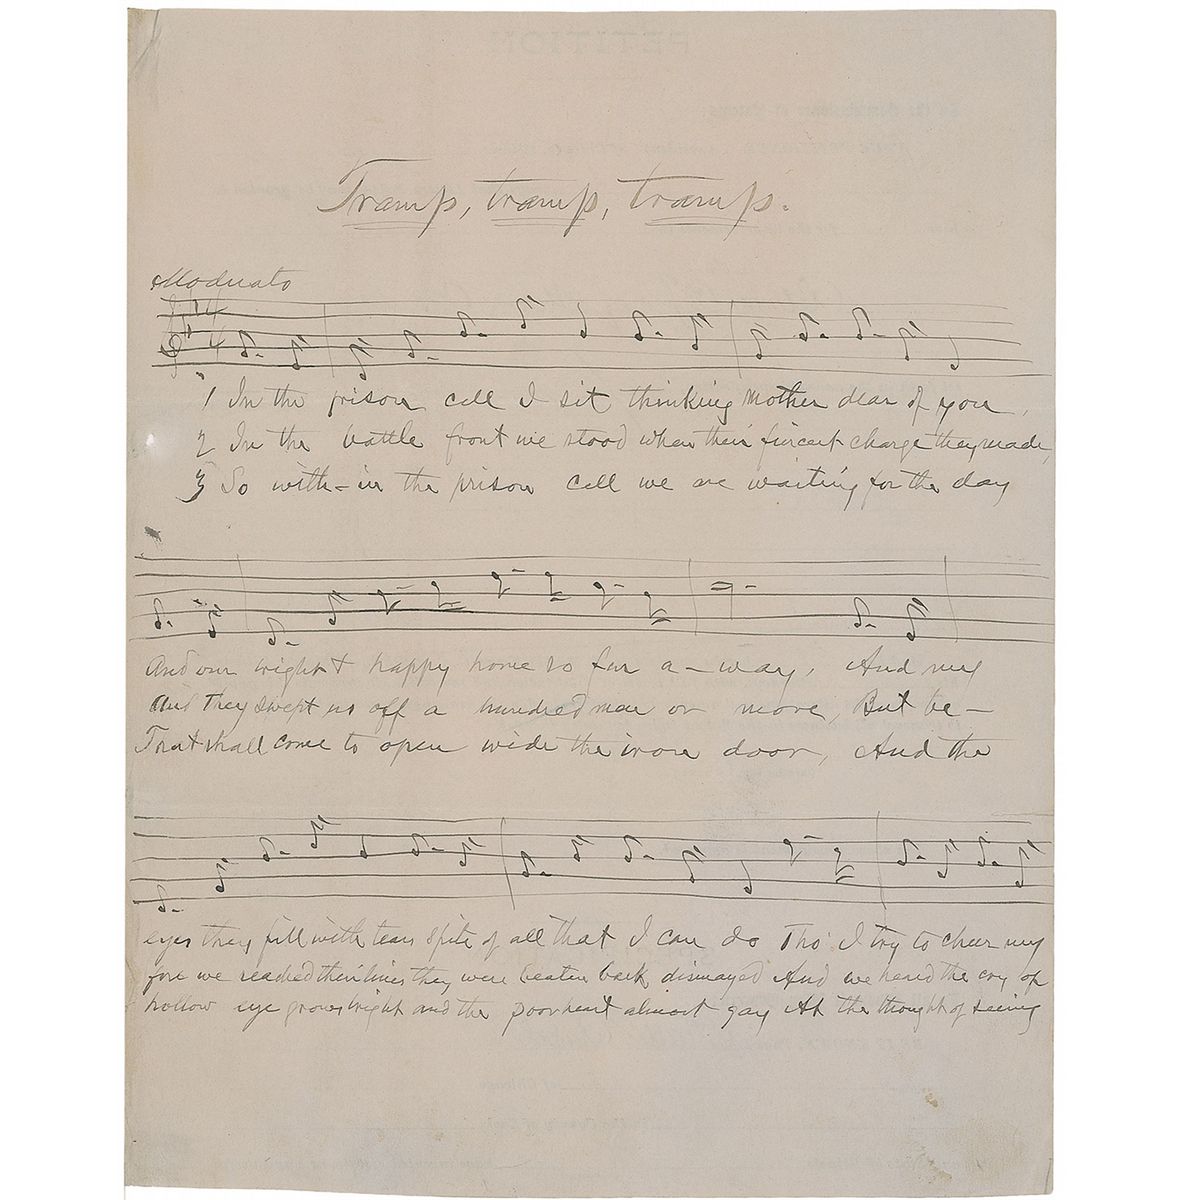 Tramp, tramp, tramp.
Moderato
1 In the prison cell I sit thinking mother dear of you,
2 In the battle front we stood when their fircest charge they made,
3 So with-in the prison cell we are waiting for the day
And our bright & happy home so far a-way, And my
And they swept us off a hundred men or more, But be-
That shall come to open wide the iron door, And the
eyes they fill with tears Spite of all that I can do Tho' I try to cheer my
fore we reached their lines they were beaten back dismayed And we heard the cry of
hollow eye grows bright and the poor heart almost gay At the thought of seeing
PETITION